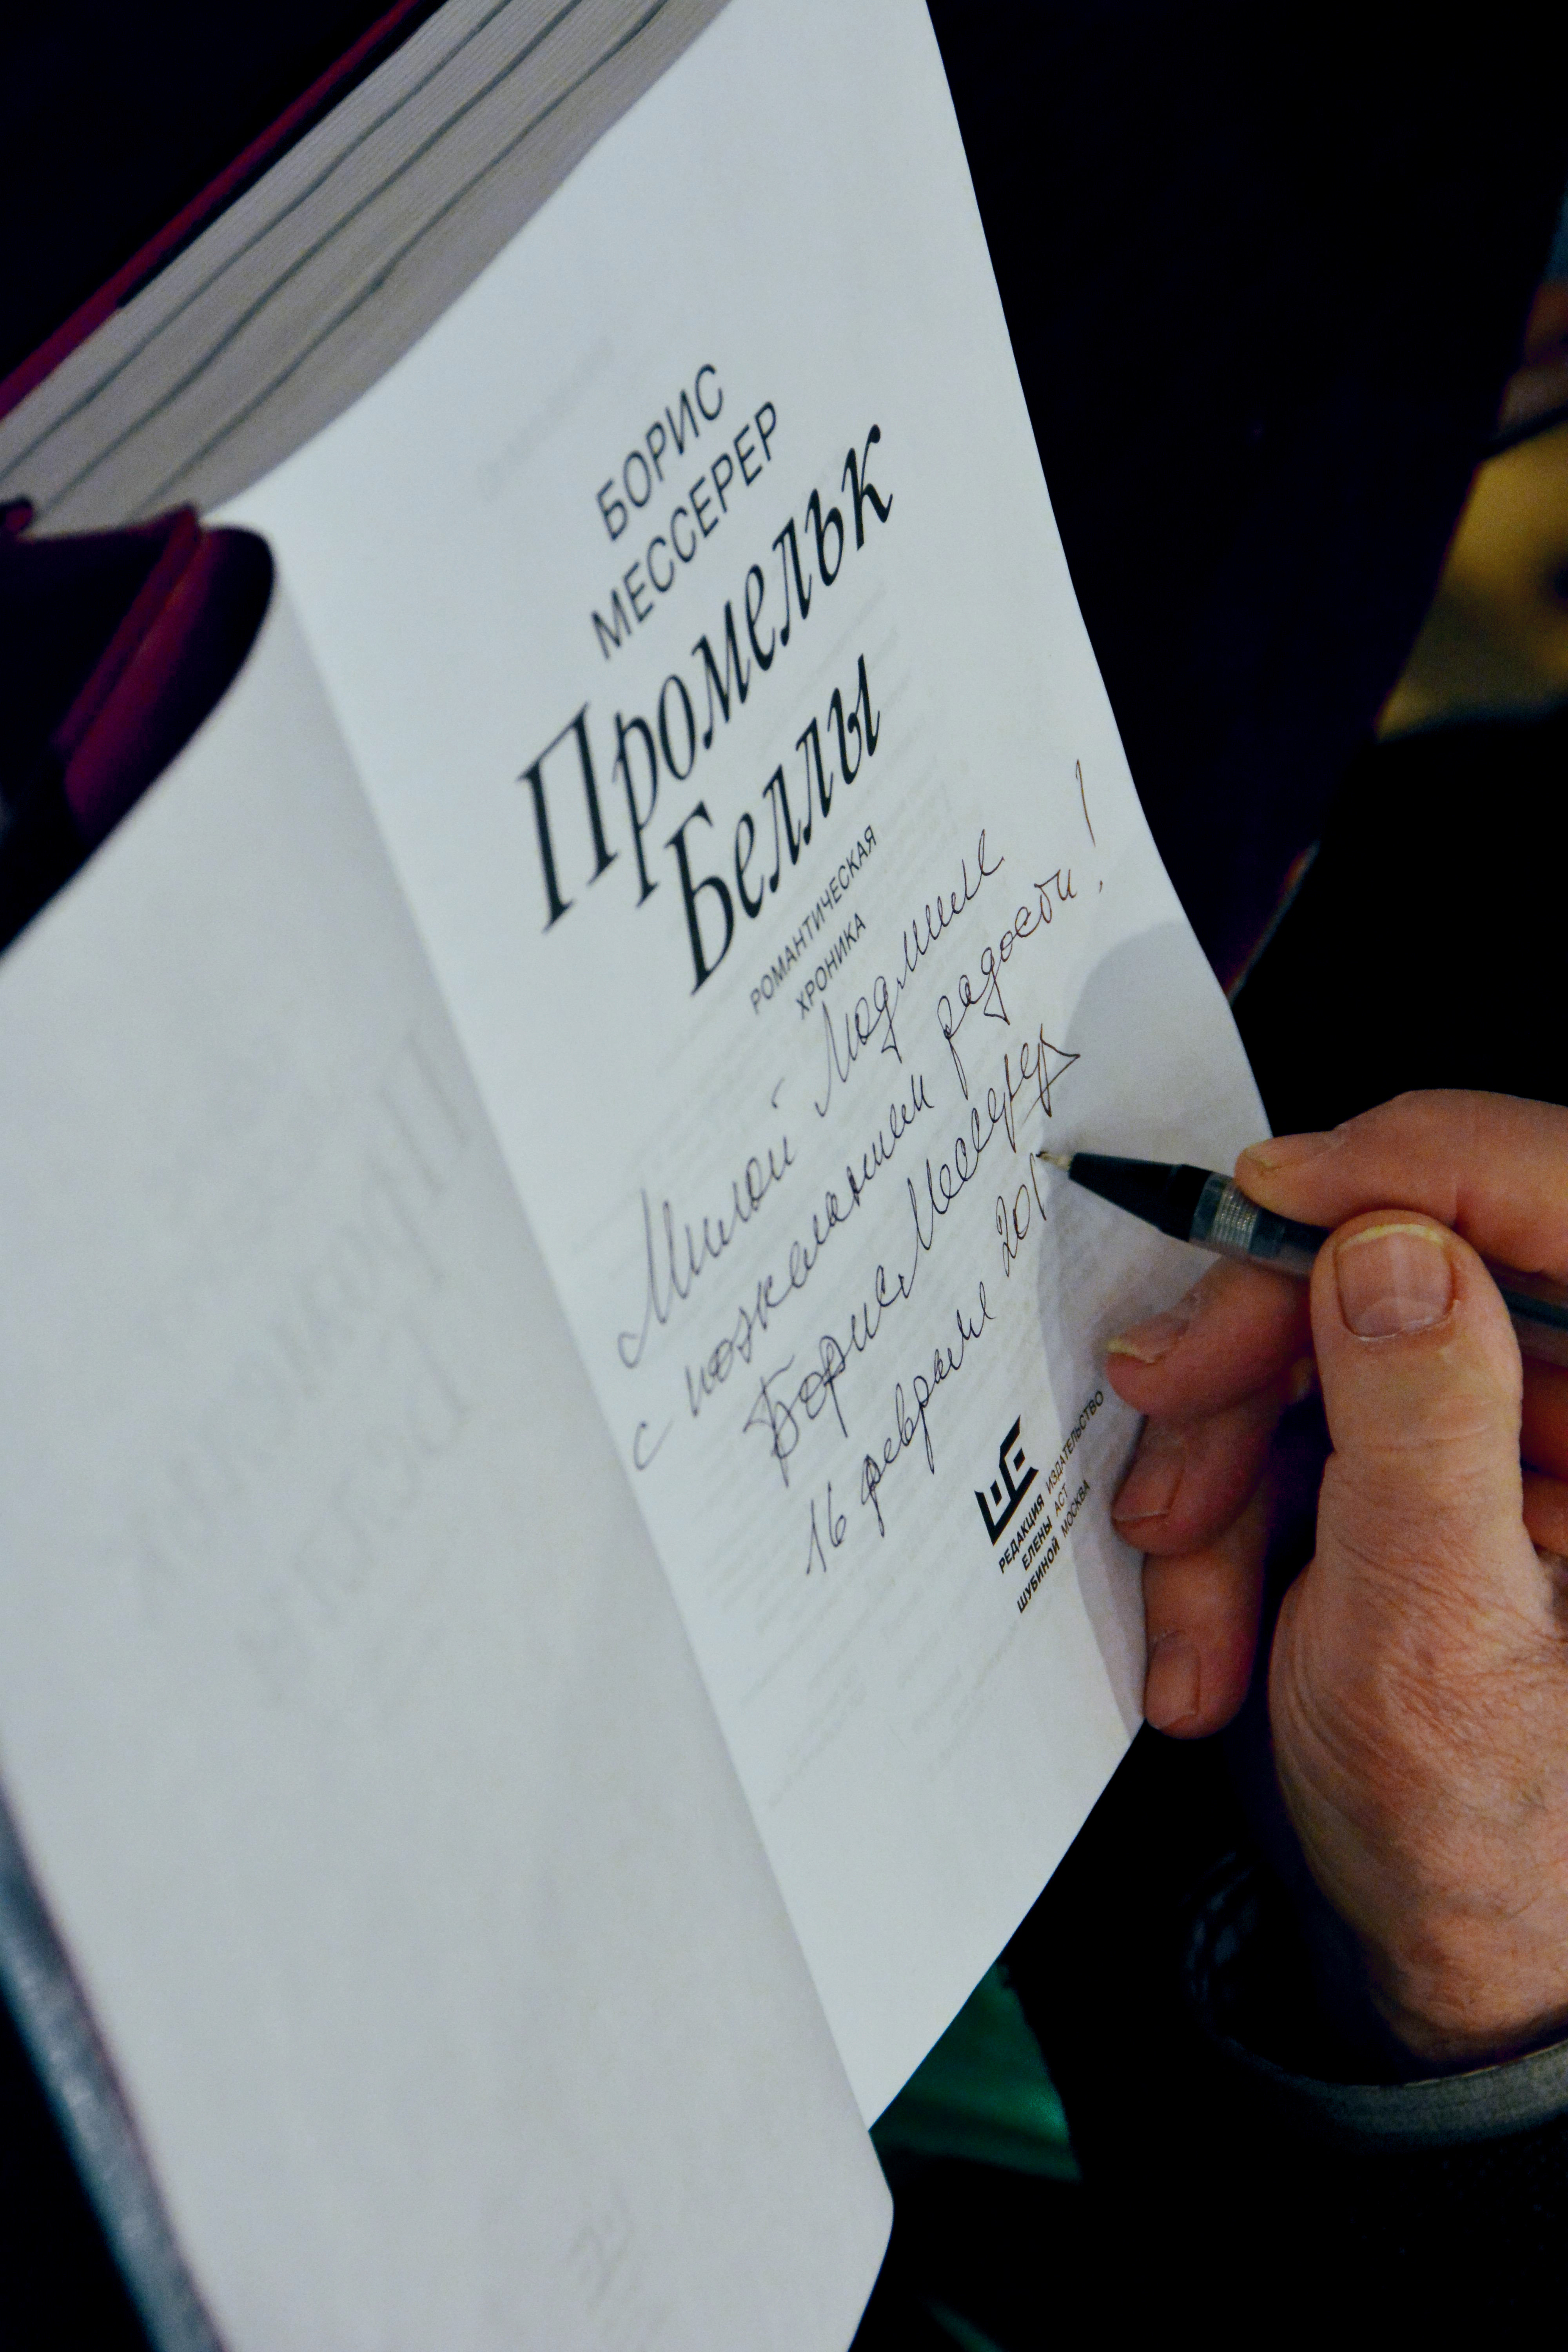 БОРИС
МЕССЕРЕР
Промельк
Беллы
РОМАНТИЧЕСКАЯ
ХРОНИКА
Милой Людмиле
с пожеланием радости!
Борис Мессерер
16 февраля 201
РЕДАКЦИЯ ИЗДАТЕЛЬСТВО
ЕЛЕНЫ АСТ
ШУБИНОЙ МОСКВА